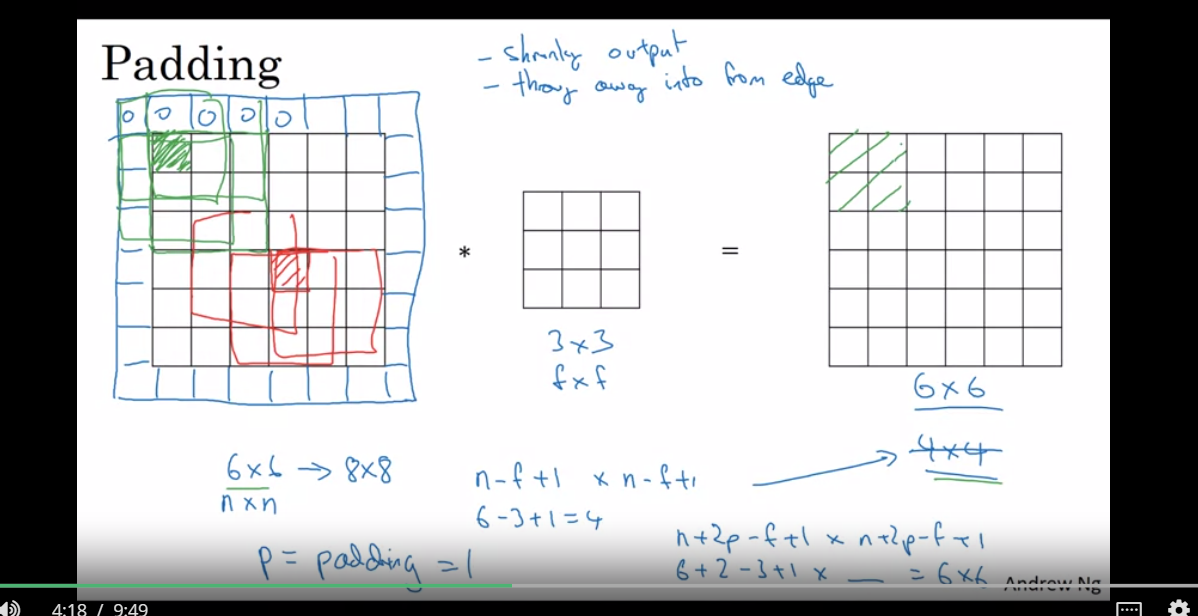 Padding
- shrinky output
- throw away info from edge
0 0 0 0 0
* =
3x3
fxf
6x6
4x4
6x6 → 8x8
nxn
n-f+1 x n-f+1
6-3+1=4
p = padding = 1
n+2p-f+1 x n+2p-f+1
6+2-3+1 x __ = 6x6
Andrew Ng
4:18 / 9:49